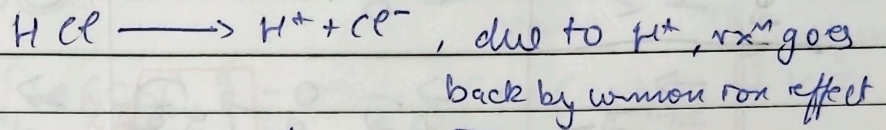 HCl ⟶ H⁺ + Cl⁻ , due to H⁺, rxⁿ goes
back by common ion effect